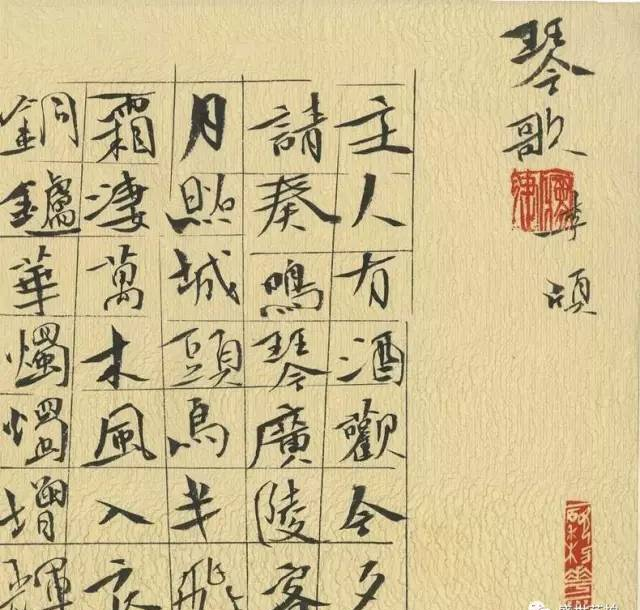 琴歌
李頎
主人有酒觀今夕
請奏鳴琴廣陵客
月照城頭烏半飛
霜淒萬木風入衣
銅鑪華燭燭增輝